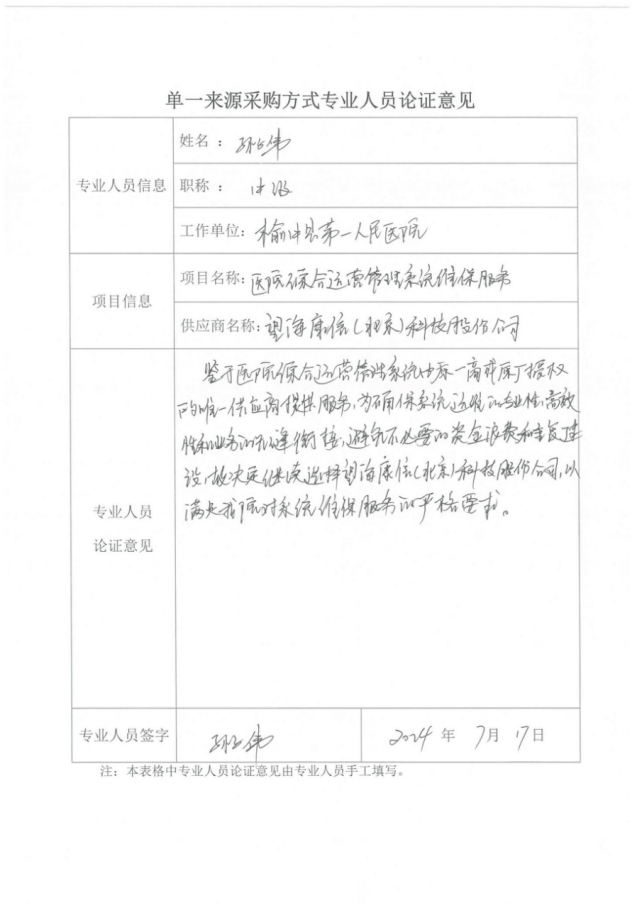 单一来源采购方式专业人员论证意见
专业人员信息
姓名：
职称：中级
工作单位：榆中县第一人民医院
项目信息
项目名称：医院综合运营管理系统维保服务
供应商名称：望海康信（北京）科技股份公司
专业人员
论证意见
鉴于医院综合运营管理系统由原厂授权
的唯一供应商提供服务，为确保系统运维的专业性、高效
性和业务的无缝衔接，避免不必要的资金浪费和重复建
设，故决定继续选择望海康信（北京）科技股份公司，以
满足我院对系统维保服务的严格要求。
专业人员签字
2024 年 7 月 17 日
注：本表格中专业人员论证意见由专业人员手工填写。